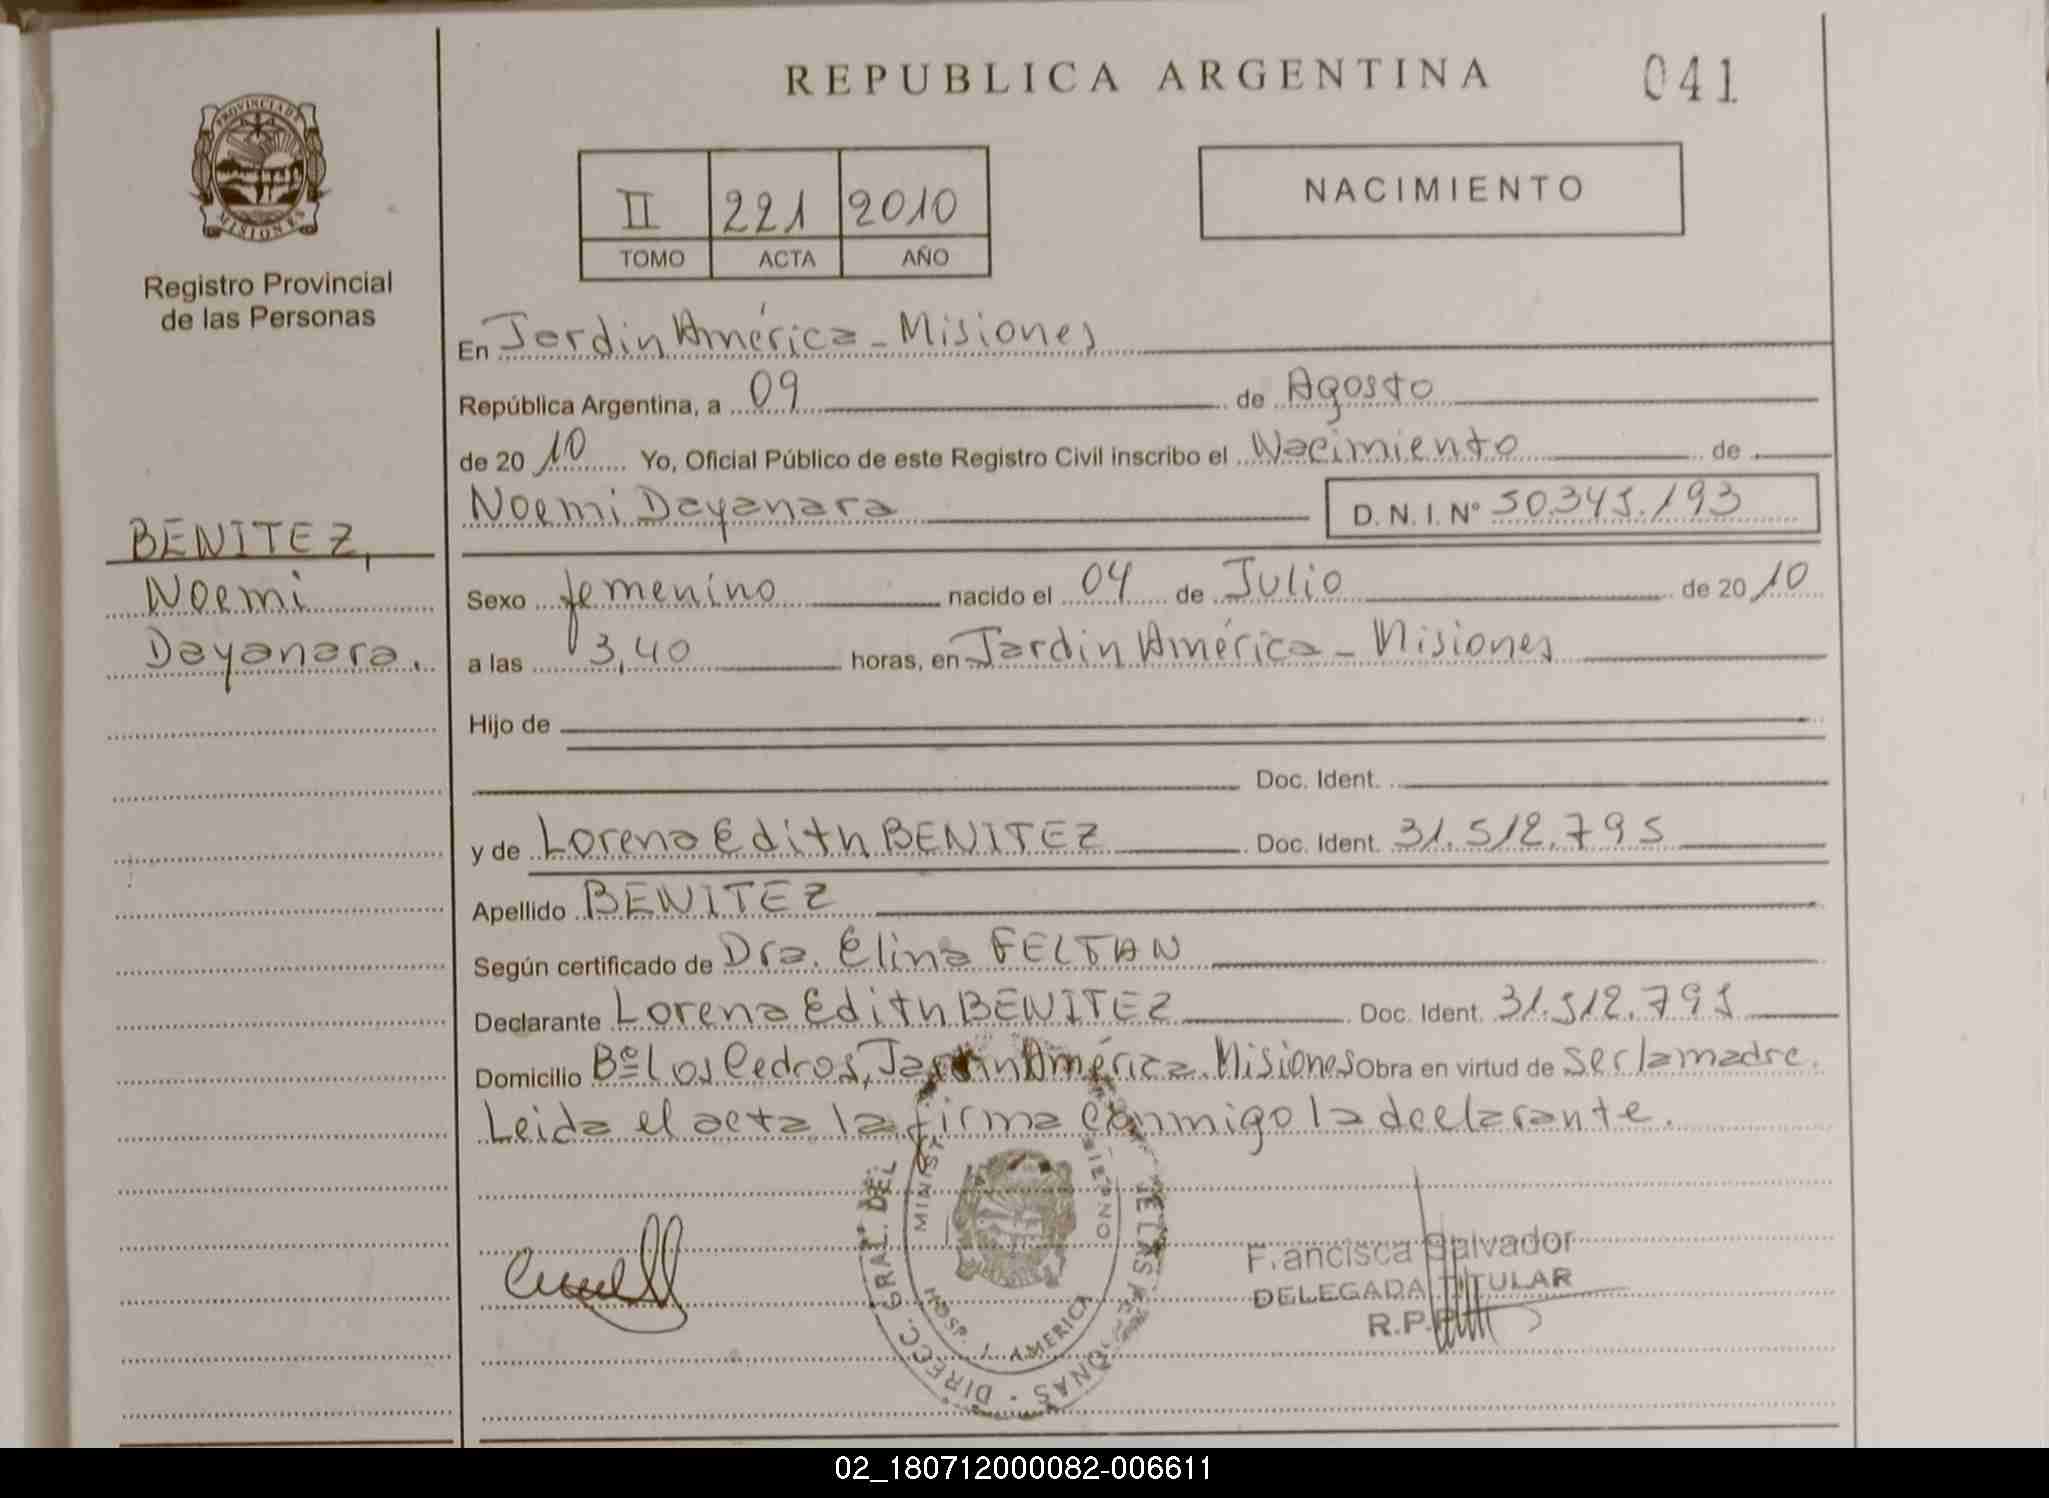 REPUBLICA ARGENTINA
041
PROVINCIA DE
MISIONES
Registro Provincial
de las Personas
II 221 2010
TOMO ACTA AÑO
NACIMIENTO
En Jardin América - Misiones
República Argentina, a 09 de Agosto
de 20 10 Yo, Oficial Público de este Registro Civil inscribo el Nacimiento de
Noemi Dayanara D.N.I. Nº 50.345.193
BENITEZ,
Noemi
Dayanara.
Sexo femenino nacido el 04 de Julio de 20 10
a las 3,40 horas, en Jardin América - Misiones
Hijo de
Doc. Ident.
y de Lorena Edith BENITEZ Doc. Ident. 31.512.795
Apellido BENITEZ
Según certificado de Dra. Elina FELTAN
Declarante Lorena Edith BENITEZ Doc. Ident. 31.512.795
Domicilio Bº Los Cedros, Jardin América. Misiones Obra en virtud de ser la madre.
Leida el acta la firma conmigo la declarante.
DIRECC. GRAL. DEL
HOSP. J. AMERICA
Francisca Salvador
DELEGADA TITULAR
R.P.P.
02_180712000082-006611